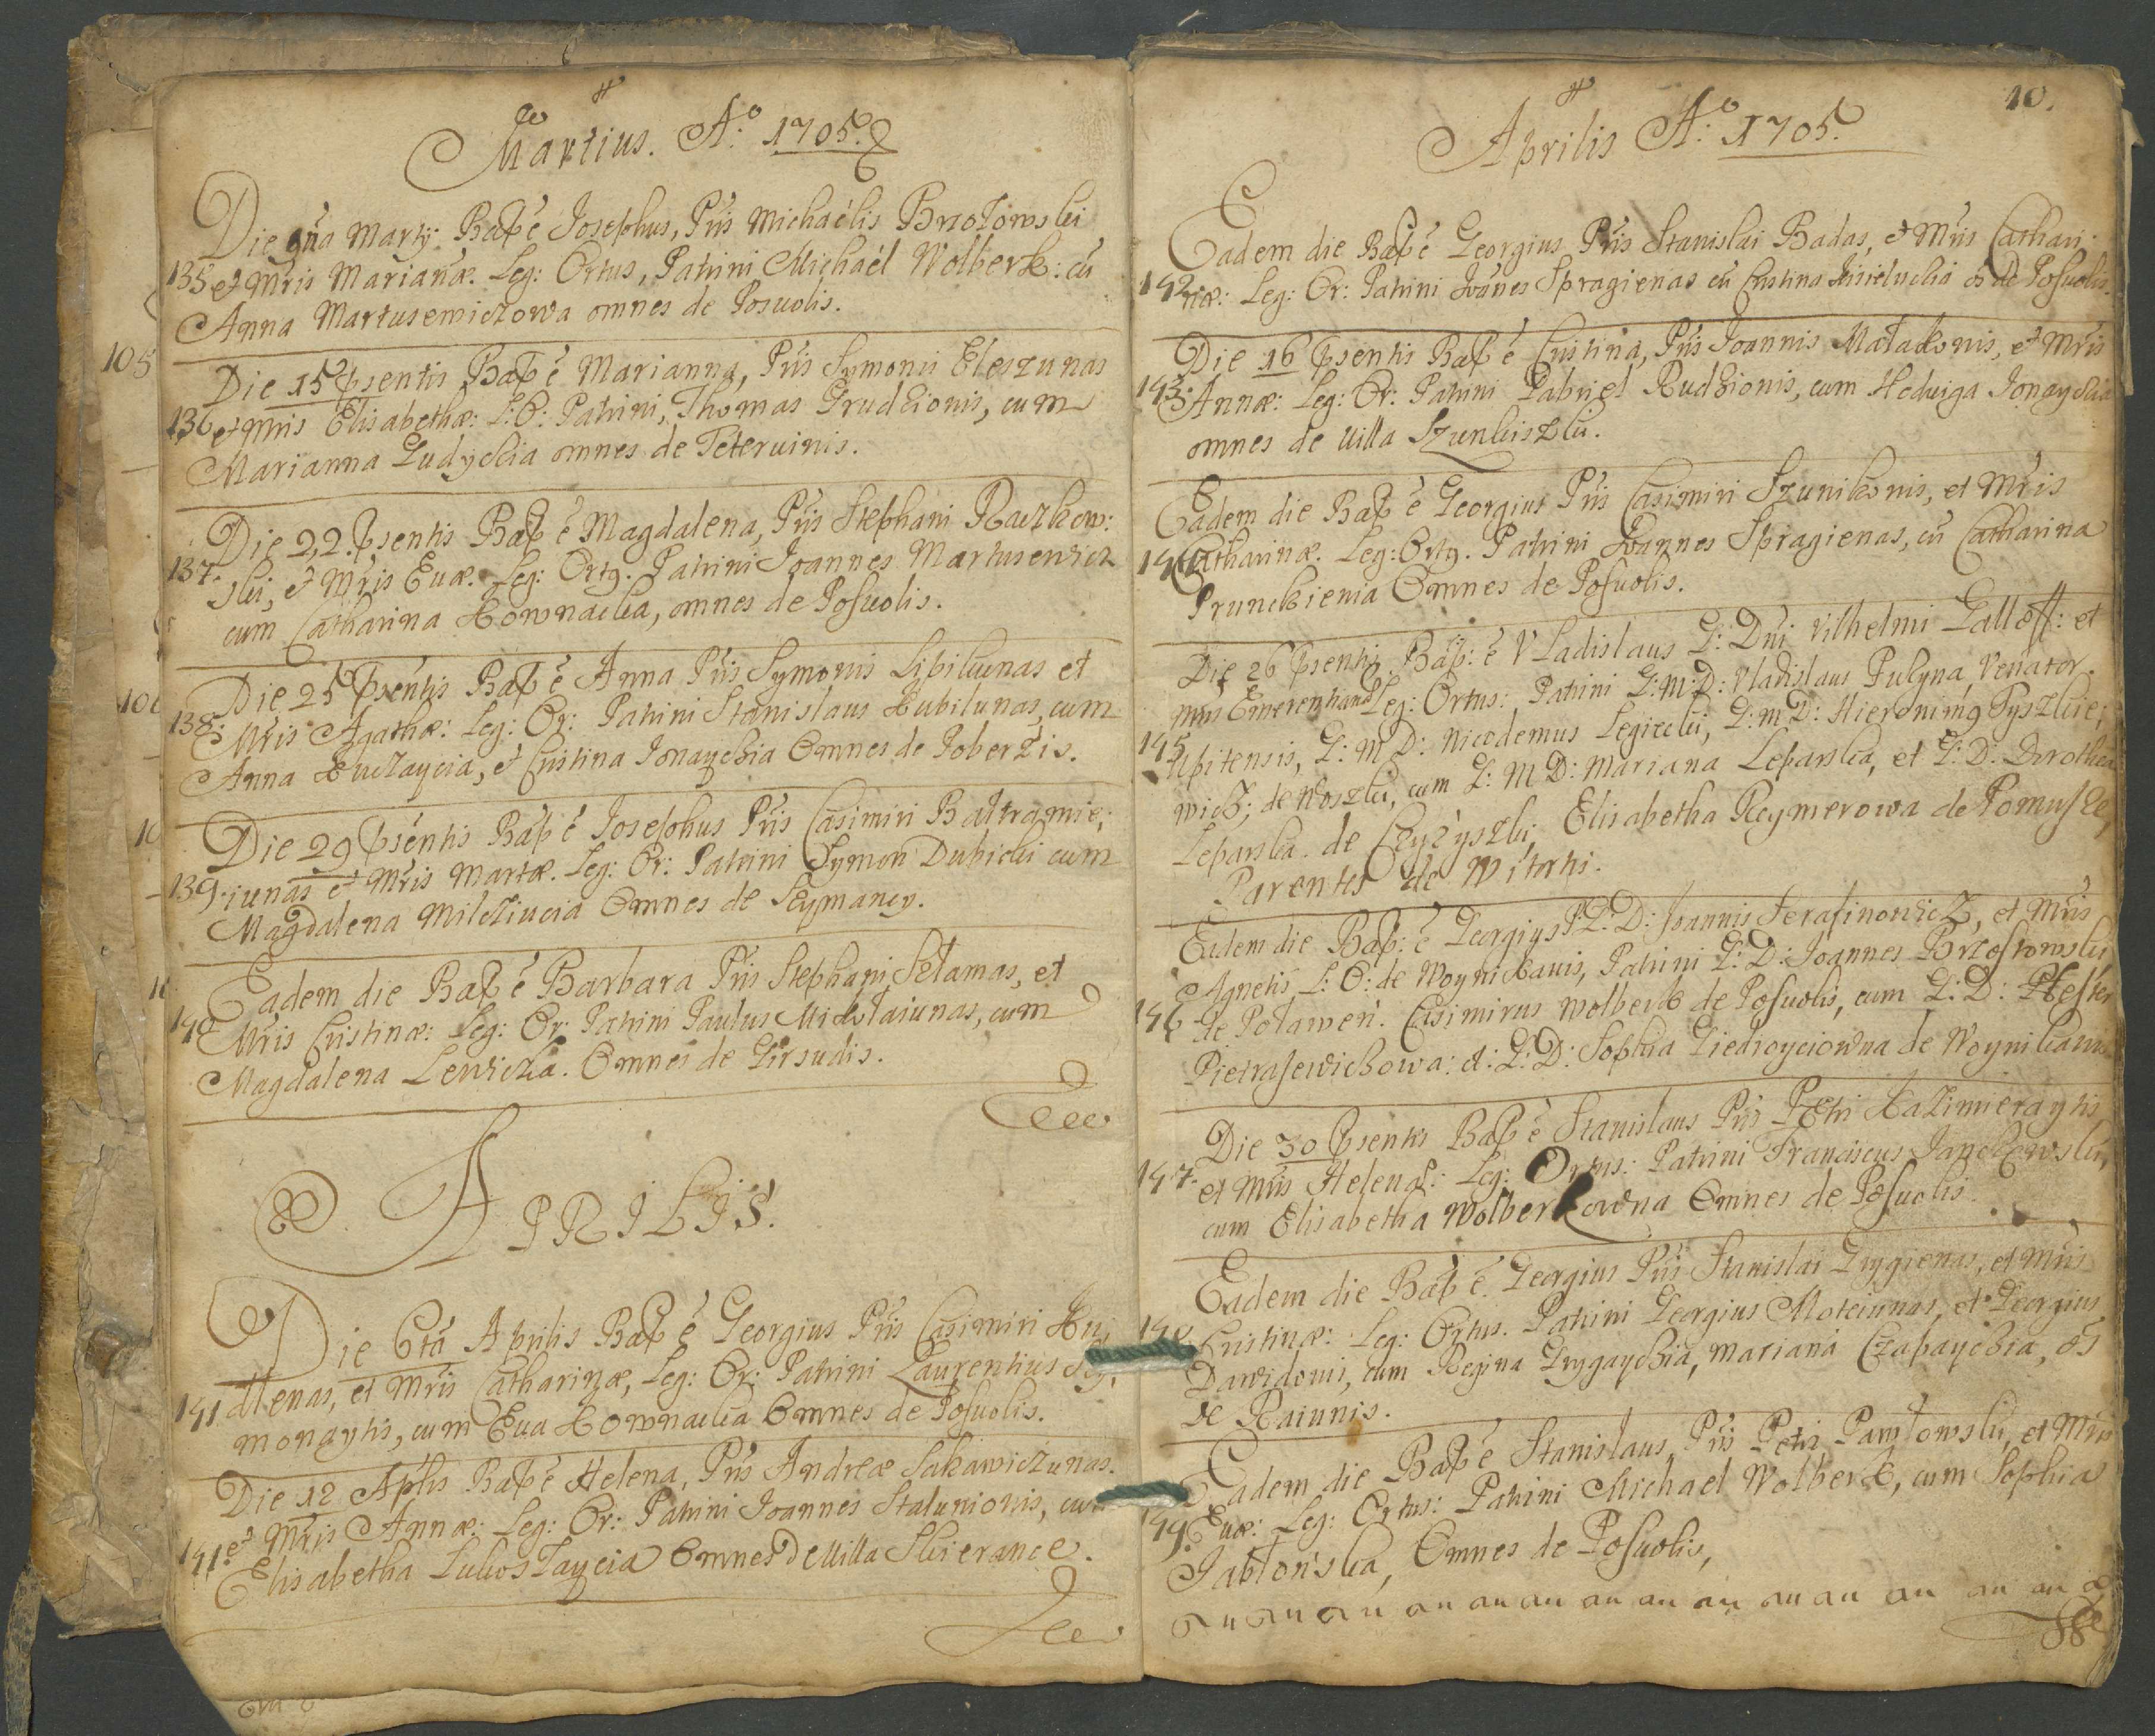 Martius. A.o 1705.
Die 9na Martij Bap: ē Josephus, Pris Michaelis Brzozowski
135 et Mris Marianæ. Leg: Ortus, Patrini Michaël Wolberk: cū
Anna Martusewiczowa omnes de Posuolis.
105
Die 15 psentis Bap ē Marianna, Pris Symonis Eleszunas
136 et Mris Elisabethæ: L: O: Patrini, Thomas Grudzionis, cum
Marianna Gudyckia omnes de Teteruinis.
Die 22. psentis Bap ē Magdalena, Pris Stephani Raczkow:
137. ski, et Mris Euæ. Leg: Ort9. Patrini Joannes Martusewicz
cum Catharina Kownacka, omnes de Posuolis.
Die 25 psentis Bap ē Anna Pris Symonis Lipskunas et
138. Mris Agathæ: Leg: Or: Patrini Stanislaus Kubilunas, cum
Anna, et Cristina Jonayckia Omnes de
Die 29 psentis Bap ē Josephus Pris Casimiri Baltramie;
139. iunas et Mris Martæ. Leg: Or: Patrini Symon Dubicki cum
Magdalena Milcziucia Omnes de Seymancy.
Eadem die Bap ē Barbara Pris Stephani Selamas, et
140 Mris Cristinæ: Leg: Or: Patrini Paulus Mikolaiunas, cum
Magdalena Lewicka. Omnes de Girsudis.
APRILIS.
Die 6ta Aprilis Bap ē Georgius Pris Casimiri Ku;
141. dlenas, et Mris Catharinæ, Leg: Or: Patrini Laurentius Sey;
monaytis, cum Eua Kownacka Omnes de Posuolis.
Die 12 Aplis Bap ē Helena, Pris Andreæ Sakawiczunas.
141. et Mris Annæ: Leg: Or: Patrini Joannes Stalunionis, cum
Elisabetha LukosTaycia Omnes de Uilla Skierance.
10.
Aprilis A.o 1705.
Eadem die Bap ē Georgius Pris Stanislai Badas, et Mris Cathari;
142. næ: Leg: Or: Patrini Joānes Spragienas cū Cristina os de Posuolis.
Die 16 psentis Bap ē Cristina, Pris Joannis Matakonis, et Mris
143. Annæ: Leg: Or: Patrini Gabriel Rudzionis, cum Heduiga Jonayckia
omnes de uilla Szunkiszki.
Eadem die Bap ē Georgius Pris Casimiri Szunikonis, et Mris
144 Catharinæ. Leg: Ort9. Patrini Joannes Spragienas, cū Catharina
Prunckienia Omnes de Posuolis.
Die 26 psentis Bap: ē Vladislaus G: Dni Vilhelmi Galloff: et
Mris Emerentianæ Leg: Ortus: Patrini G: M: D: Vladislaus Puzyna, Venator
145 Upitensis, G: M D: Nicodemus Legiecki, G: M D: Hieronim9 Tyszkie;
wicz; de Woszki, cum G: M D: Mariana Leparska, et G: D: Dorothea
Leparska de Czyzyszki, Elisabetha Reymerowa de Pomusze,
Parentes de Witarti.
Eadem die Bap: ē Georgius P: G: D: Joannis Serafinowicz, et Mris
Agnetis L: O: de Woynikanis, Patrini G: D: Joannes Brzostowski
146 de Polawen. Casimirus Wolberk de Posuolis, cum G: D: Hester
Pietrasewichowa: et: G: D: Sophia Giedroyciowna de Woynikanis
Die 30 psentis Bap ē Stanislaus Pris Petri Kazimieraytis
147. et Mris Helenæ: Leg: Ortus: Patrini Franciscus Janczewski,
cum Elisabetha Wolberkowna Omnes de Posuolis.
Eadem die Bap ē Georgius Pris Stanislai Grygienas, et Mris
148 Cristinæ: Leg: Ortus. Patrini Georgius Moteiunas, et Georgius
Dawidonis, cum Regina Grygayckia, Mariana Czapayckia, os
de Raiunis.
Eadem die Bap ē Stanislaus, Pris Petri Pawlowski, et Mris
149. Euæ: Leg: Ortus: Patrini Michael Wolberk, cum Sophia
Jablonska, Omnes de Posuolis,